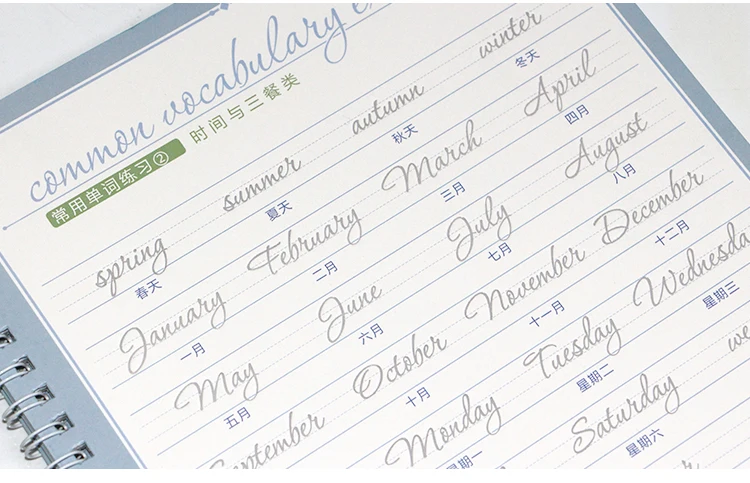 common vocabulary
常用单词练习② 时间与三餐类
spring summer autumn winter
春天 夏天 秋天 冬天
January February March April
一月 二月 三月 四月
May June July August
五月 六月 七月 八月
September October November December
十月 十一月 十二月
Monday Tuesday Wednesda
星期一 星期二 星期三
Saturday we
星期六